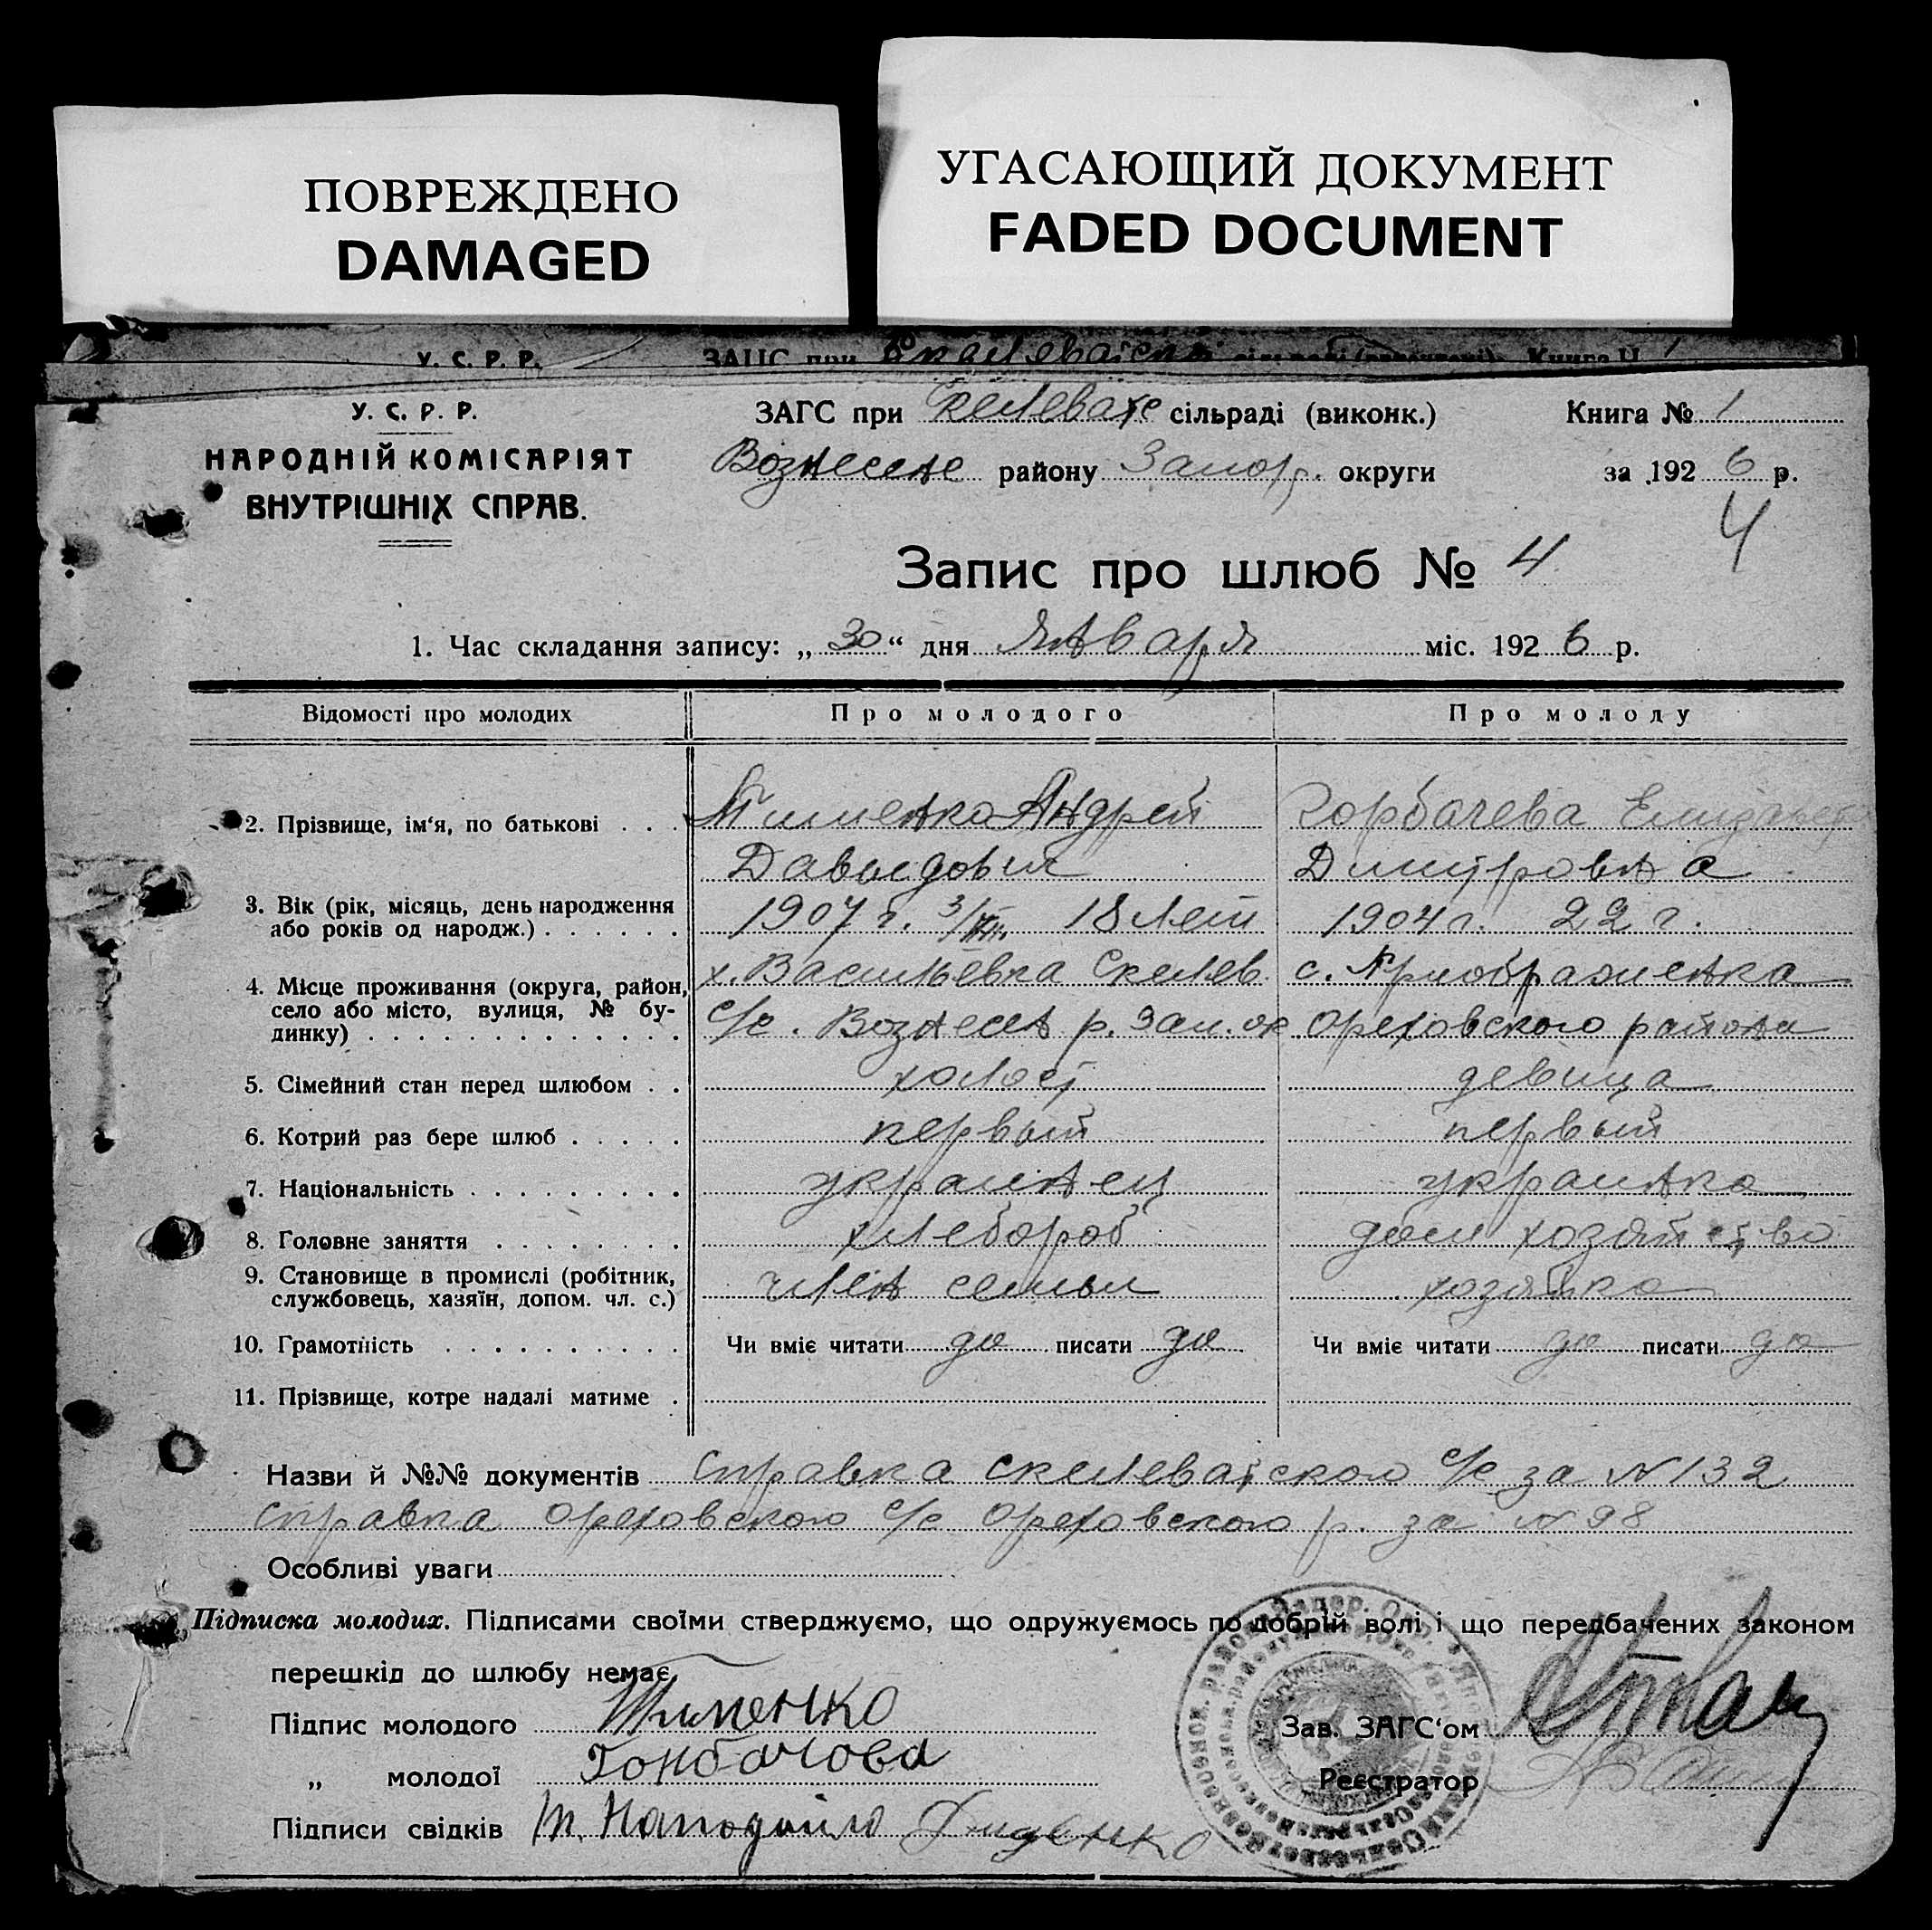 ПОВРЕЖДЕНО
DAMAGED
УГАСАЮЩИЙ ДОКУМЕНТ
FADED DOCUMENT
У. С. Р. Р.
ЗАГС при сільраді (виконк.) Книга № 1
НАРОДНІЙ КОМІСАРІЯТ
ВНУТРІШНІХ СПРАВ.
Вознесенс району Запор. округи за 1926 р.
4
Запис про шлюб № 4
1. Час складання запису: „30“ дня Января міс. 1926 р.
Відомості про молодих Про молодого Про молоду
2. Прізвище, ім'я, по батькові Андрей Горбачева Елизавета
Давыдович Дмитровна
3. Вік (рік, місяць, день народження
або років од народж.) 1907 г. 18 лет 1904 г. 22 г.
4. Місце проживання (округа, район,
село або місто, вулиця, № бу-
динку)
х. Васильевка Скелев. с. Приображенка
с/с. Вознесен р. Зап. ок Ореховского района
5. Сімейний стан перед шлюбом холост девица
6. Котрий раз бере шлюб первый первый
7. Національність украинец украинка
8. Головне заняття хлебороб дом хозяйство
9. Становище в промислі (робітник,
службовець, хазяїн, допом. чл. с.) член семьи хозяйка
10. Грамотність Чи вміє читати да писати да Чи вміє читати да писати да
11. Прізвище, котре надалі матиме
Назви й №№ документів справка Скелеватского с/с за №132
справка Ореховского с/с Ореховского р. за №98
Особливі уваги
Підписка молодих. Підписами своїми стверджуємо, що одружуємось по добрій волі і що передбачених законом
перешкід до шлюбу немає.
Підпис молодого
Зав. ЗАГС'ом
„ молодої
Реєстратор
Підписи свідків